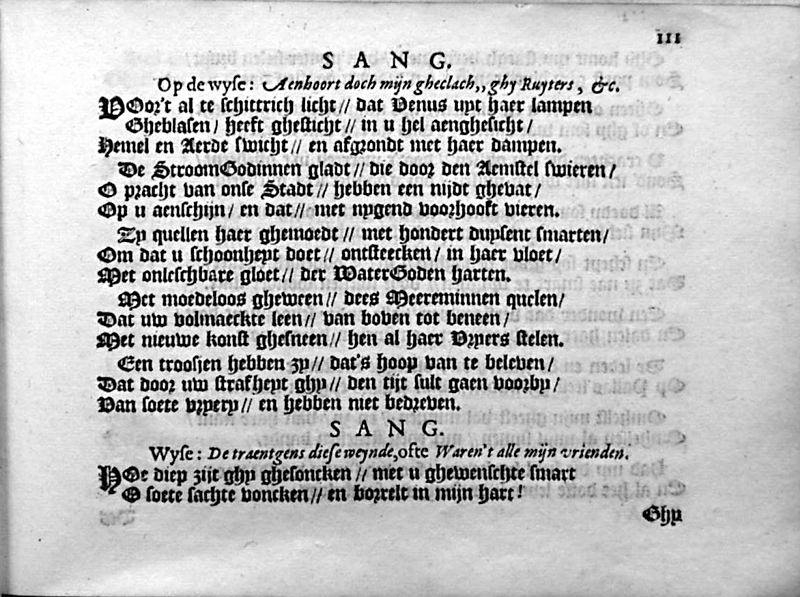 111
SANG.
Op de wyse: Aenhoort doch mijn gheclach,, ghy Ruyters, &c.
VOor't al te schittrich licht// dat Venus uyt haer lampen
Gheblasen/ heeft ghesticht// in u hel aenghesicht/
Hemel en Aerde swicht// en afgrondt met haer dampen.
De StroomGodinnen gladt// die door den Aemstel swieren/
O pracht van onse Stadt// hebben een nijdt ghevat/
Op u aenschijn/ en dat// met nygend voorhooft vieren.
Zy quellen haer ghemoedt// met hondert duysent smarten/
Om dat u schoonheyt doet// ontsteecken/ in haer vloet/
Met onleschbare gloet// der WaterGoden harten.
Met moedeloos gheween// dees Meereminnen quelen/
Dat uw volmaeckte leen// van boven tot beneen/
Met nieuwe konst ghesneen// hen al haer Vryers stelen.
Een troosjen hebben zy// dat's hoop van te beleven/
Dat door uw strafheyt ghy// den tijt sult gaen voorby/
Van soete vryery// en hebben niet bedreven.
SANG.
Wyse: De traentgens diese weynde, ofte Waren't alle mijn vrienden.
HOe diep zijt ghy ghesoncken// met u ghewenschte smart
O soete sachte voncken// en borrelt in mijn hart!
Ghy